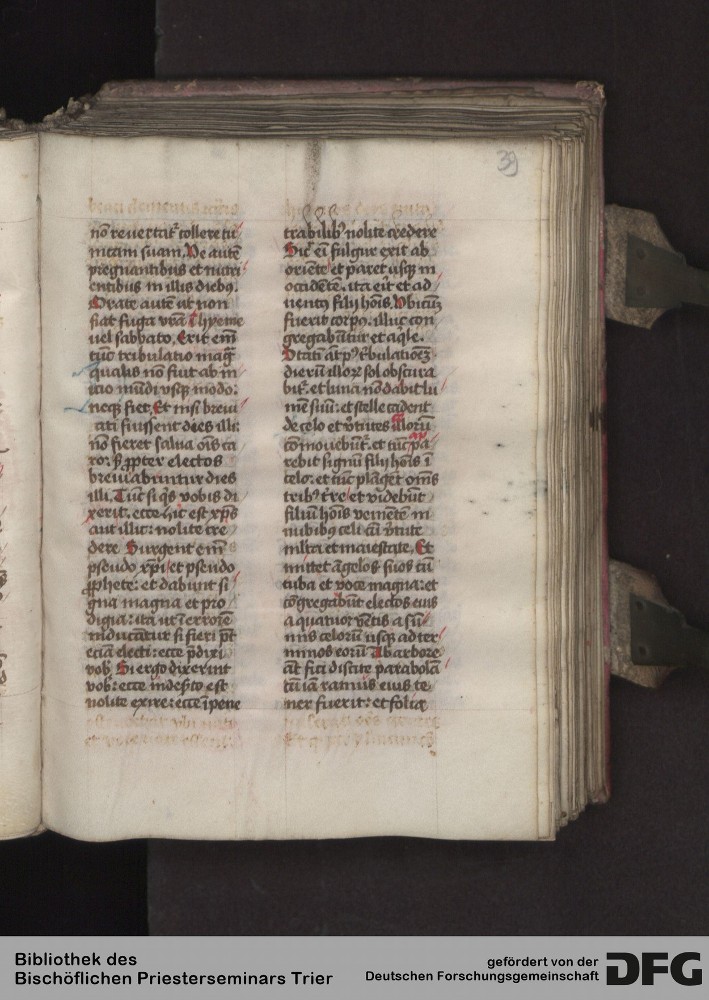 39
nō reuertat᷑ tollere tu
nicam suam. Ve autē
pregnantibus et nutri
entibus in illis diebꝰ.
Orate autē ut non
fiat fuga vr̄a ī hyeme
uel sabbato. Erit em̄
tūc tribulatio maḡ
qualis nō fuit ab in
icio mūdi vsq̄ modo:
neqꝫ fiet. Et nisi breui
ati fuissent dies illi:
nō fieret salua oīs ca
ro: Sꝫ ꝓpter electos
breuiabuntur dies
illi. Tūc si q̄s vobis di
xerit. ecce hic est xp̄s
aut illic: nolite cre
dere Surgent em̄
pseudo xp̄i et pseudo
ꝓphete: et dabunt si
gna magna et pro
digia: ita ut ī errorē
inducātur si fieri p̄t
eciā electi: ecce p̄dixi
vob̄ Si ergo dixerint
vob̄: ecce in deserto est
nolite exire: ecce ī pene
trabilibꝰ nolite credere
Sic̄ em̄ fulgur exit ab
oriēte et paret usqꝫ in
occidētē. ita erit et ad
uentꝰ filij hoīs. Vbicūqꝫ
fuerit corpꝰ. illuc con
gregabūtur et aq̄le.
Stati aūt pꝰ t̄bulationeꝫ
dierū illoꝝ sol obscura
bit᷑. et luna nō dabit lu
mē suū: et stelle cadent
de celo et v̄tutes illorū
cōmouebūt᷑. et tūc pa
rebit signū filij hoīs ī
celo: et tūc plāgēt om̄s
tribꝰ t̄re et videbūt
filiū hoīs veniētē in
nubibus celi cū v̄tute
ml̄ta et maiestate. Et
mittet āgelos suos cū
tuba et voce magna: et
cōgregabūt electos eius
a quatuor vētis a sū
mis celorū usqꝫ ad ter
minos eorū Ab arbore
aūt fici discite parabolā
cū iā ramus eius te
ner fuerit: et folia
Bibliothek des
Bischöflichen Priesterseminars Trier
gefördert von der
Deutschen Forschungsgemeinschaft
DFG